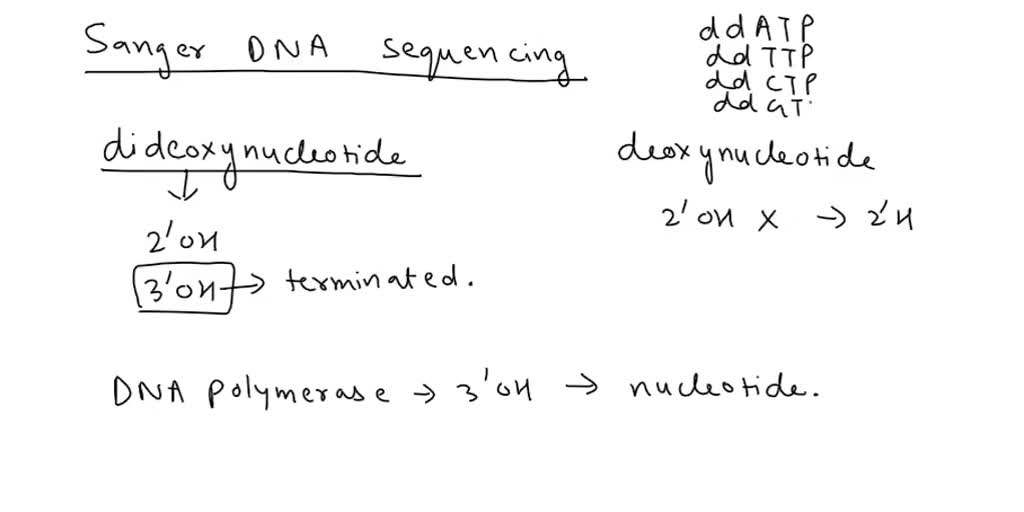 Sanger DNA sequencing
ddATP
ddTTP
ddCTP
ddGT
dideoxynucleotide
deoxynucleotide
↓
2'OH
2'OH X → 2'H
3'OH → terminated.
DNA polymerase → 3'OH → nucleotide.